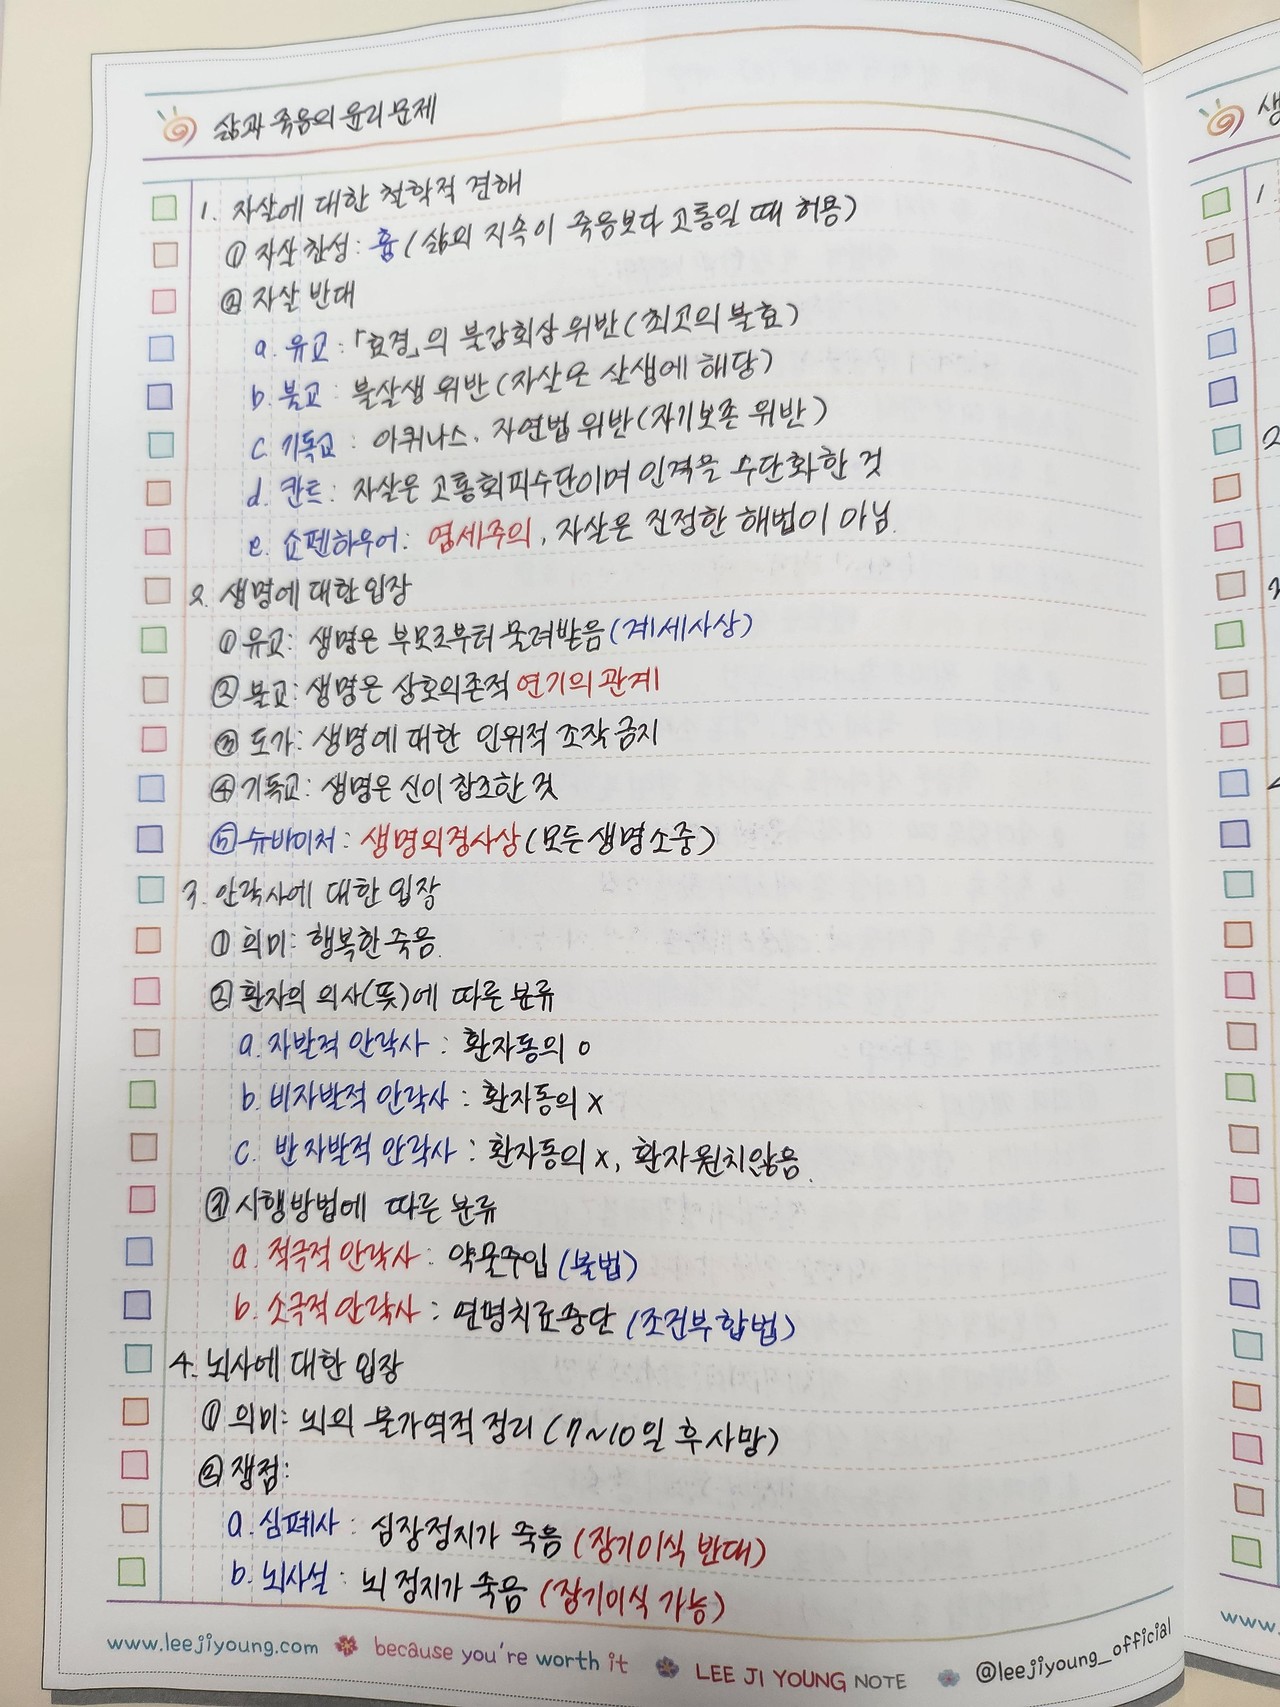 삶과 죽음의 윤리 문제
1. 자살에 대한 철학적 견해
① 자살 찬성: 흄 (삶의 지속이 죽음보다 고통일 때 허용)
② 자살 반대
a. 유교: 「효경」의 불감훼상 위반 (최고의 불효)
b. 불교: 불살생 위반 (자살은 살생에 해당)
c. 기독교: 아퀴나스. 자연법 위반 (자기보존 위반)
d. 칸트: 자살은 고통회피수단이며 인격을 수단화한 것
e. 쇼펜하우어: 염세주의, 자살은 진정한 해법이 아님.
2. 생명에 대한 입장
① 유교: 생명은 부모로부터 물려받음 (계세사상)
② 불교: 생명은 상호의존적 연기의 관계
③ 도가: 생명에 대한 인위적 조작 금지
④ 기독교: 생명은 신이 창조한 것
⑤ 슈바이처: 생명외경사상 (모든 생명 소중)
3. 안락사에 대한 입장
① 의미: 행복한 죽음.
② 환자의 의사(뜻)에 따른 분류
a. 자발적 안락사: 환자동의 O
b. 비자발적 안락사: 환자동의 X
c. 반자발적 안락사: 환자동의 X, 환자 원치않음.
③ 시행방법에 따른 분류
a. 적극적 안락사: 약물주입 (불법)
b. 소극적 안락사: 연명치료중단 (조건부합법)
4. 뇌사에 대한 입장
① 의미: 뇌의 불가역적 정리 (7~10일 후 사망)
② 쟁점:
a. 심폐사: 심장정지가 죽음 (장기이식 반대)
b. 뇌사설: 뇌 정지가 죽음 (장기이식 가능)
www.leejiyoung.com because you're worth it LEE JI YOUNG NOTE @leejiyoung_official
생
1.
2
www.